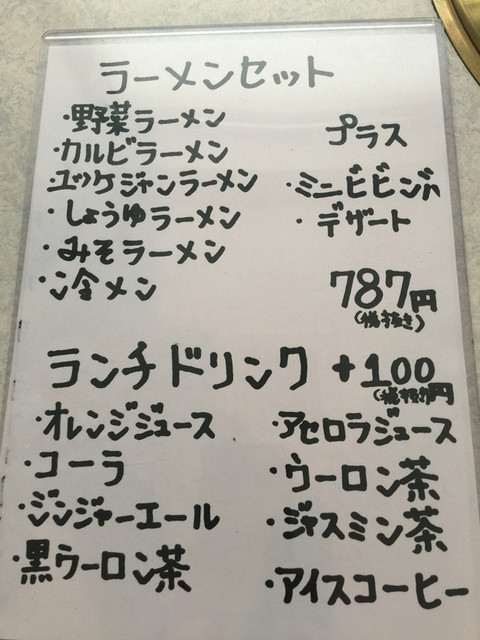 ラーメンセット
・野菜ラーメン
・カルビラーメン
・ユッケジャンラーメン
・しょうゆラーメン
・みそラーメン
・冷メン
プラス
・ミニビビンバ
・デザート
787円
(税抜き)
ランチドリンク +100円
(税抜)
・オレンジジュース
・コーラ
・ジンジャーエール
・黒ウーロン茶
・アセロラジュース
・ウーロン茶
・ジャスミン茶
・アイスコーヒー